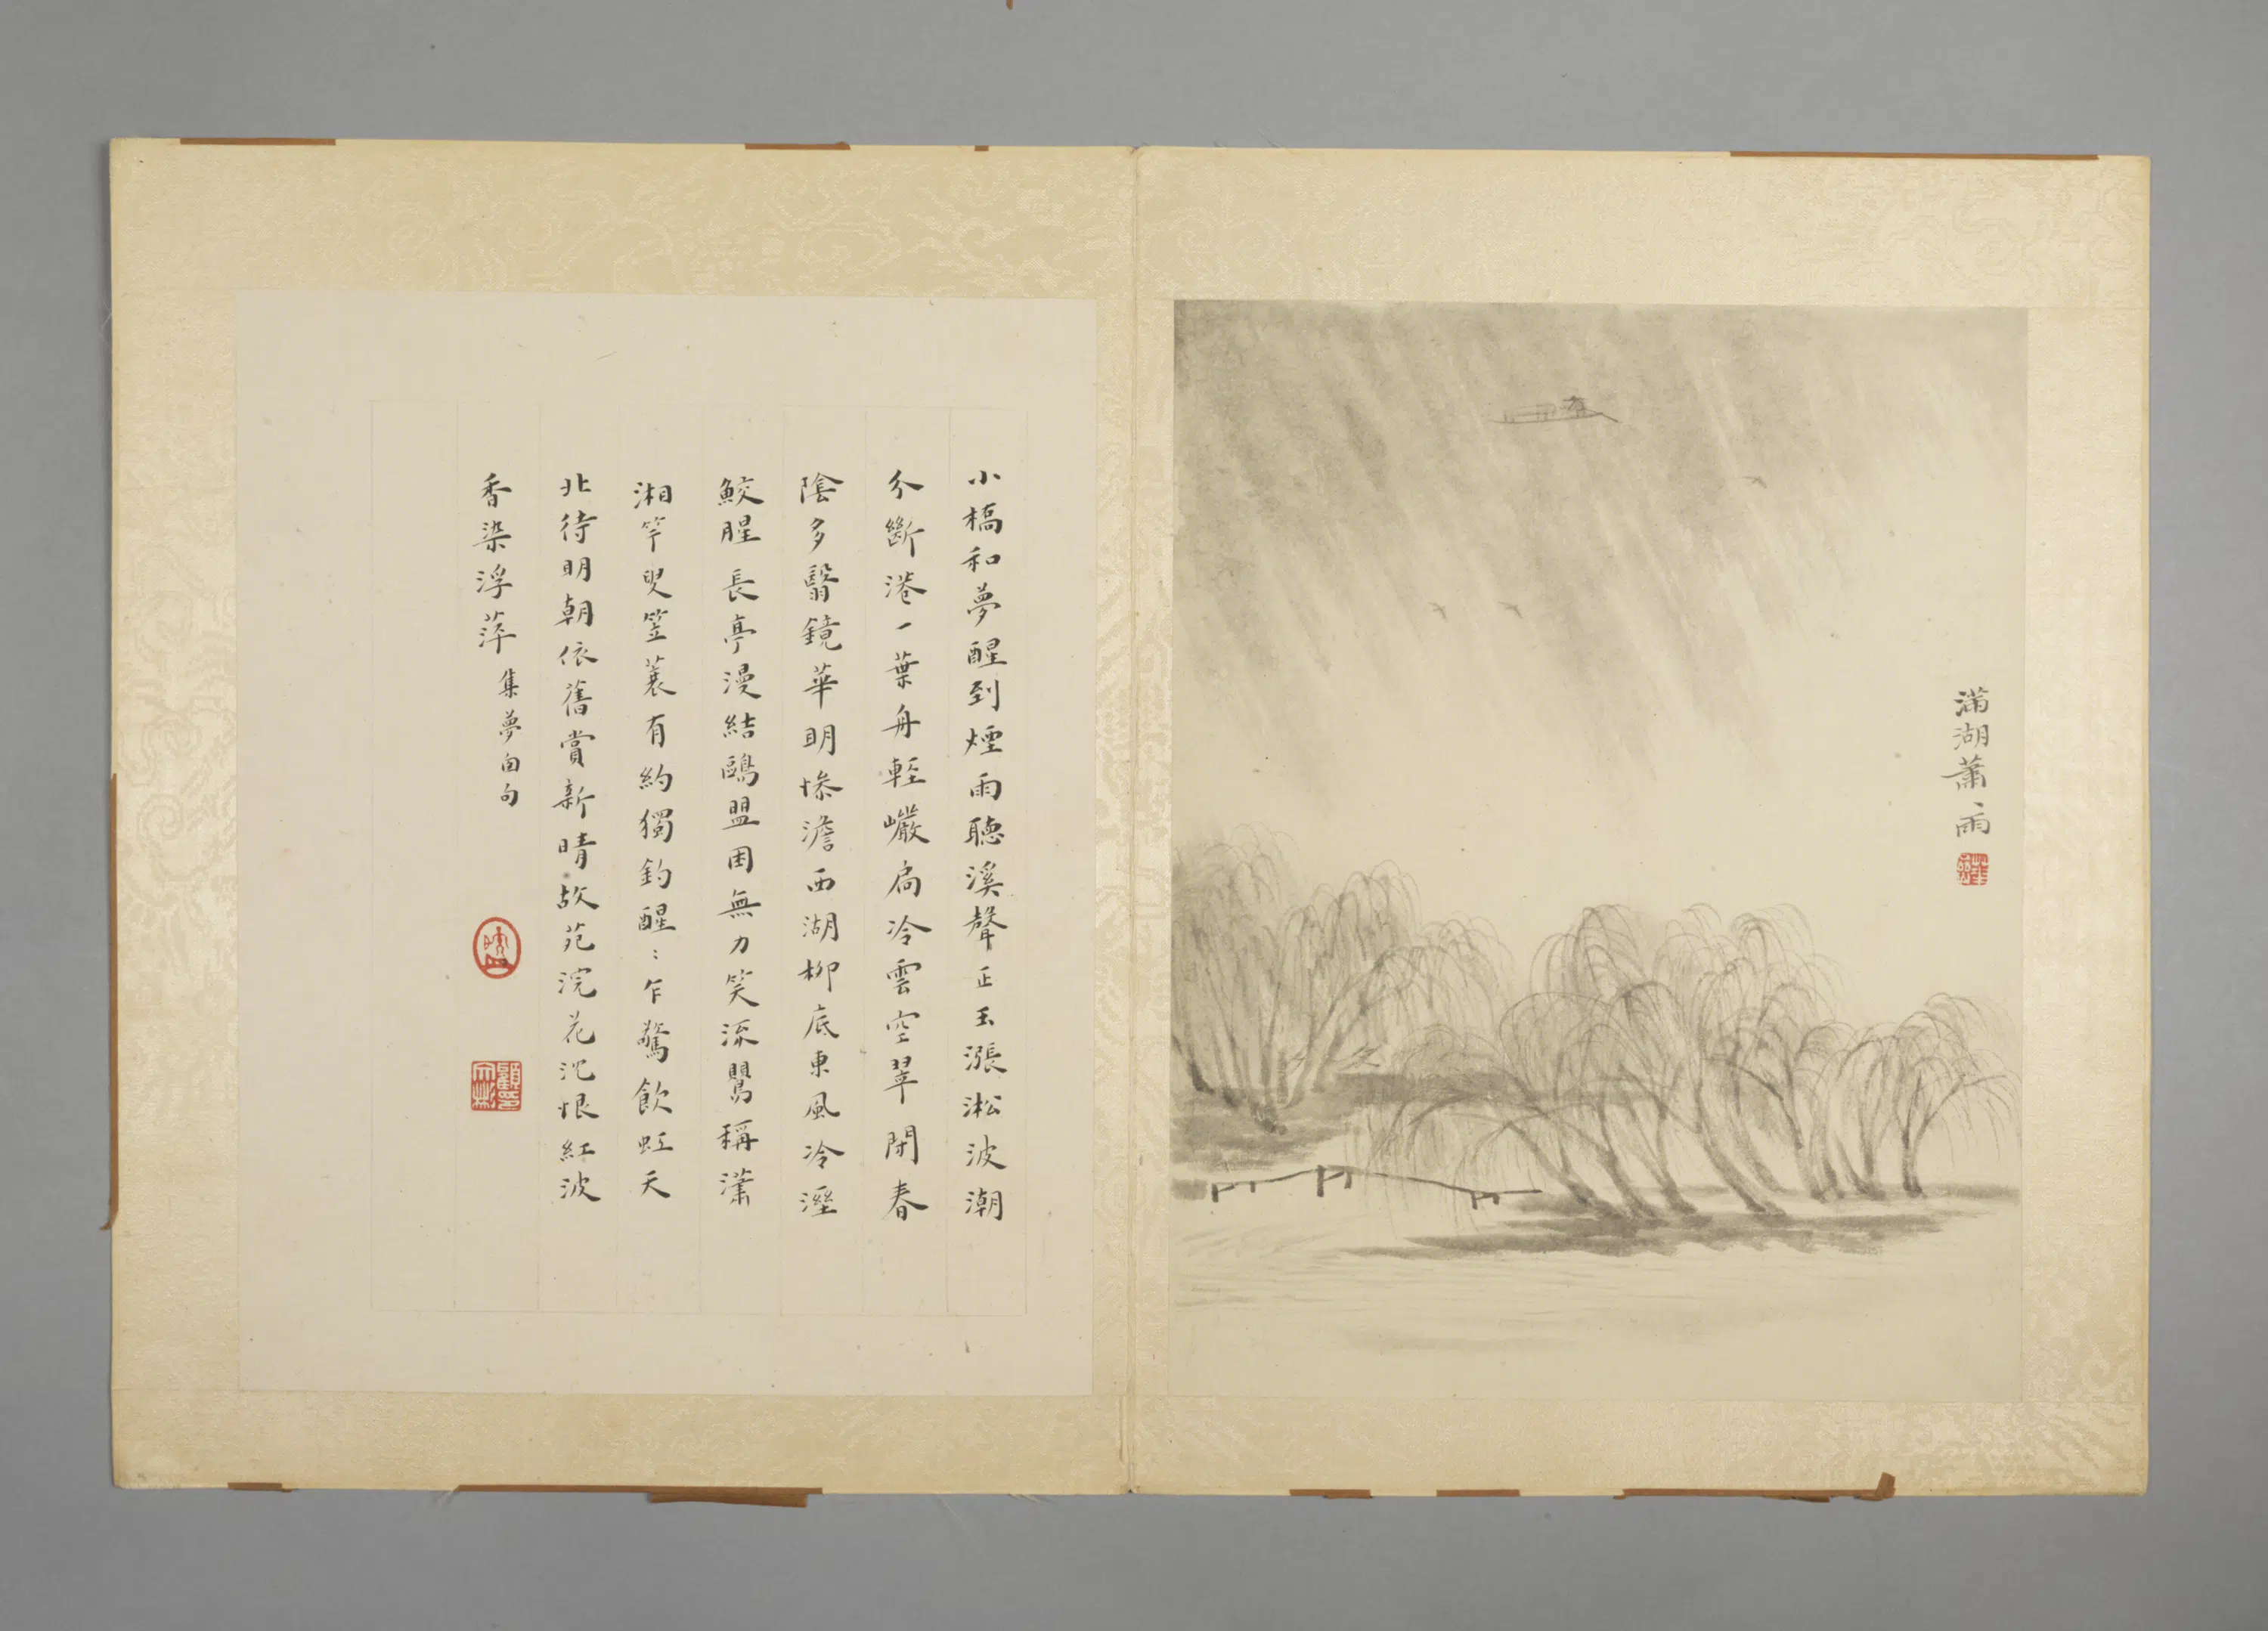 滿湖蕭雨
小橋和夢醒到煙雨聽溪聲正玉漲淞波潮
分斷港一葉舟輕巖扃冷雲空翠閉春
陰多翳鏡華明慘澹西湖柳底東風冷溼
鮫腥長亭漫結鷗盟困無力笑流鶯稱瀟
湘竿叟笠蓑有約獨釣醒〻乍驚飲虹天
北待明朝依舊賞新晴故苑浣花沈恨紅波
香染浮萍
集夢窗句